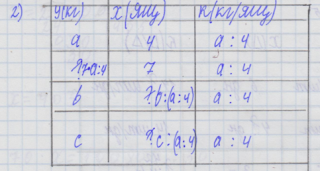 2) у(кг) х(ящ) к(кг/ящ)
а 4 а : 4
?7•а:4 7 а : 4
b ?b:(а:4) а : 4
c ?c:(а:4) а : 4